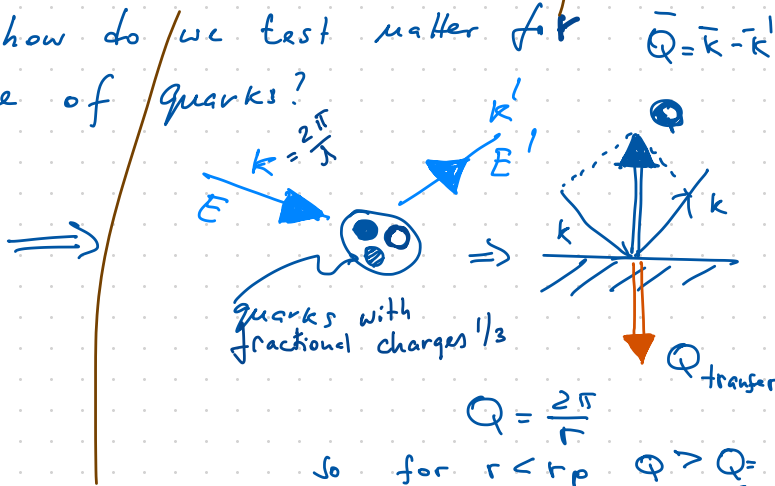 how do we test matter for
Q̄ = k̄ - k̄'
e of quarks?
k = 2π/λ
E
k'
E'
Q
k
k
quarks with
fractional charges 1/3
Q tranfer
Q = 2π/r
so for r < rp Q > Q=